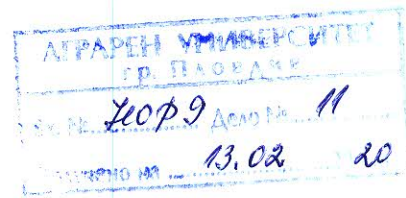 АГРАРЕН УНИВЕРСИТЕТ
ГР. ПЛОВДИВ
Вх. № НОФ9 Дело № 11
Получено на 13.02 20